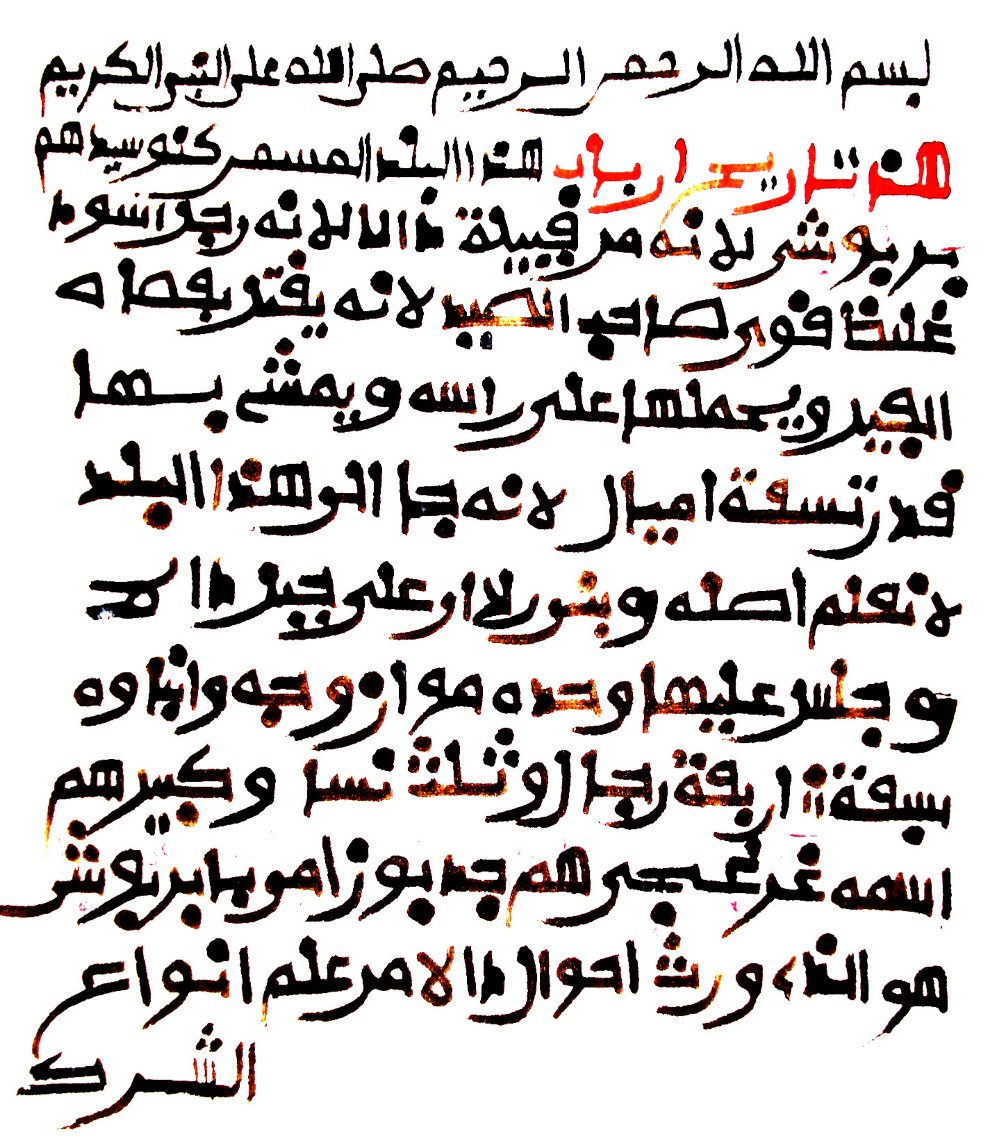 بسم الله الرحمن الرحيم صلى الله على النبى الكريم
هذا تاريخ ارباب هذا البلد المسمى كنو سيدهم
بربوشى لانه من قبيلة دالا لانه رجل اسود
غليظ قوى صاحب الصيد لانه يقتل بعصاه
الفيل ويحملها على راسه ويمشى بها
قدر تسعة اميال لانه جا الى هذا البلد
لا نعلم اصله وبنى على جبل دالا
و جلس عليها وحده مع ازوجه وابناوه
سبعة اربعة رجال وثلث نسا وكبيرهم
اسمه غرغجى هم جد بوزامو بربوش
هو الذى ورث احوال دالا من علم انواع
الشرك